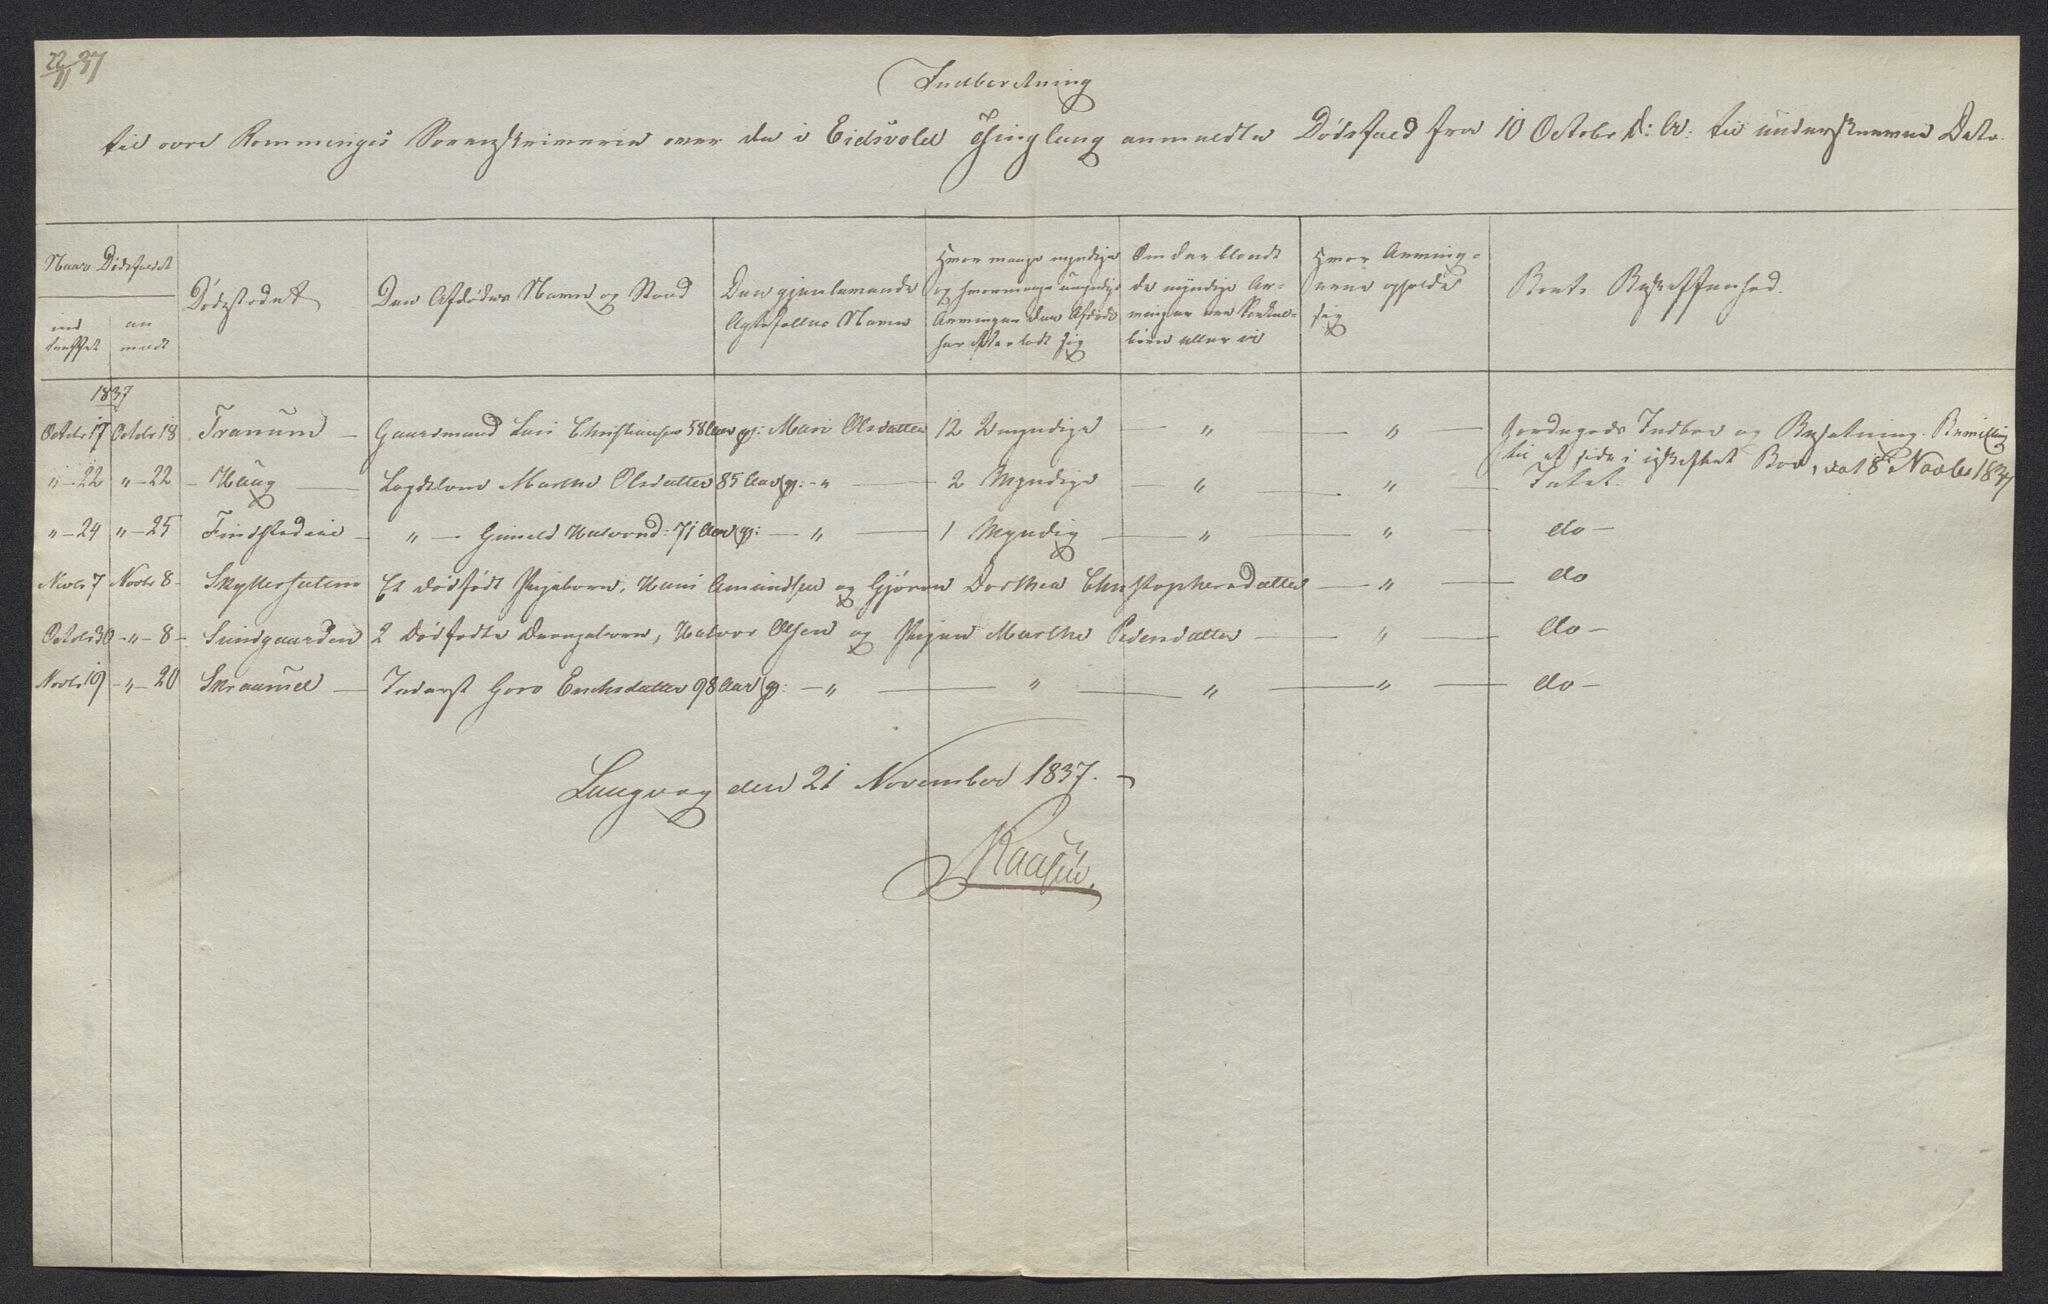 22/11 37
Indberetning
til øvre Rommeriges Sorenskriverie over de i Eidsvold Thinglaug anmeldte Dødsfald fra 10 Octobr d: A: til underskrevne Dato.
Naar Dødsfaldet
ind
truffet
an
meldt
Dødsstedet
Den Afdødes Navn og Stand
Den gjenlevende
Ægtefælles Navn
Hvor mange myndige
og hvormange umyndige
Arvinger den Afdøde
har efterladt sig
Om der blandt
de myndige Ar-
vinger ere
børn eller ei
Hvor Arving-
erne opholde
sig
Boets Beskaffenhed.
1837
Octobr 17 Octobr 18 Tranum — Gaardmand Lars Christiansen 58 Aar g: Mari Olsdatter 12 Umyndige — " — " — Jordegods Indboe og Besætning. Bevilling
til at sidde i uskiftet Boe, dat 8 Novbr 1837
" — 22 " — 22 — Haug — Lægdslem Marthe Olsdatter 85 Aar g: — " — 2 Myndige — " — " — Intet.
" — 24 " — 25 Findstadeie — " — Gunild Halvorsd: 71 Aar g: — " — 1 Myndig — " — " — do —
Novbr 7 Novbr 8 — Et dødfødt Pigebarn, Hans Amundsen og Gjøren Dorthea Christophersdatter — " — do
Octobr 30 — " — 8 — Sundgaarden 2 dødfødte Drengebørn, Halvor Olsen og Pigen Marthe Pedersdatter — " — do —
Novbr 19 — " — 20 — Inderst Goro Erichsdatter 98 Aar g: — " — " — " — " — do —
Langvag den 21 November 1837. —